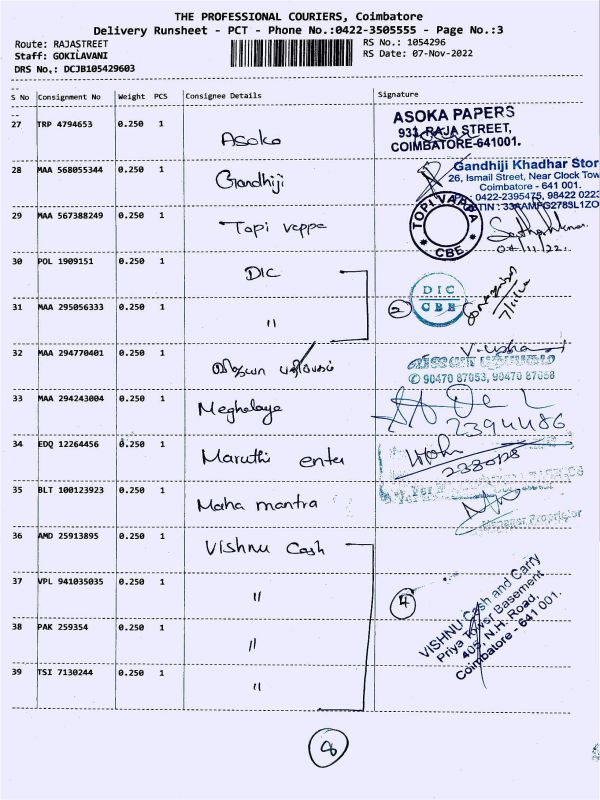 THE PROFESSIONAL COURIERS, Coimbatore
Delivery Runsheet - PCT - Phone No.:0422-3505555 - Page No.:3
Route: RAJASTREET
RS No.: 1054296
Staff: GOKILAVANI
RS Date: 07-Nov-2022
DRS No,: DCJB105429603
S No Consignment No Weight PCS Consignee Details Signature
27 TRP 4794653 0.250 1 Asoka
ASOKA PAPERS
931, RAJA STREET,
COIMBATORE-641001.
28 MAA 568055344 0.250 1 Gandhiji
Gandhiji Khadhar Stor
26, Ismail Street, Near Clock Tow
Coimbatore - 641 001.
0422-2395475, 98422 0223
29 MAA 567388249 0.250 1 Topi veppa
TOPI VAPPA
CBE
30 POL 1909151 0.250 1 DIC
DIC
CBE
2
31 MAA 295056333 0.250 1 "
32 MAA 294770401 0.250 1
✆ 90470 87053, 90470 87058
33 MAA 294243004 0.250 1 Meghalaya
2394486
34 EDQ 12264456 0.250 1 Maruthi enter
2380128
35 BLT 100123923 0.250 1 Maha mantra
Proprietor
36 AMD 25913895 0.250 1 Vishnu Cash
37 VPL 941035035 0.250 1 "
4
VISHNU Cash and Carry
Priya Tower Basement
405, N.H. Road,
Coimbatore - 641 001.
38 PAK 259354 0.250 1 "
39 TSI 7130244 0.250 1 "
8